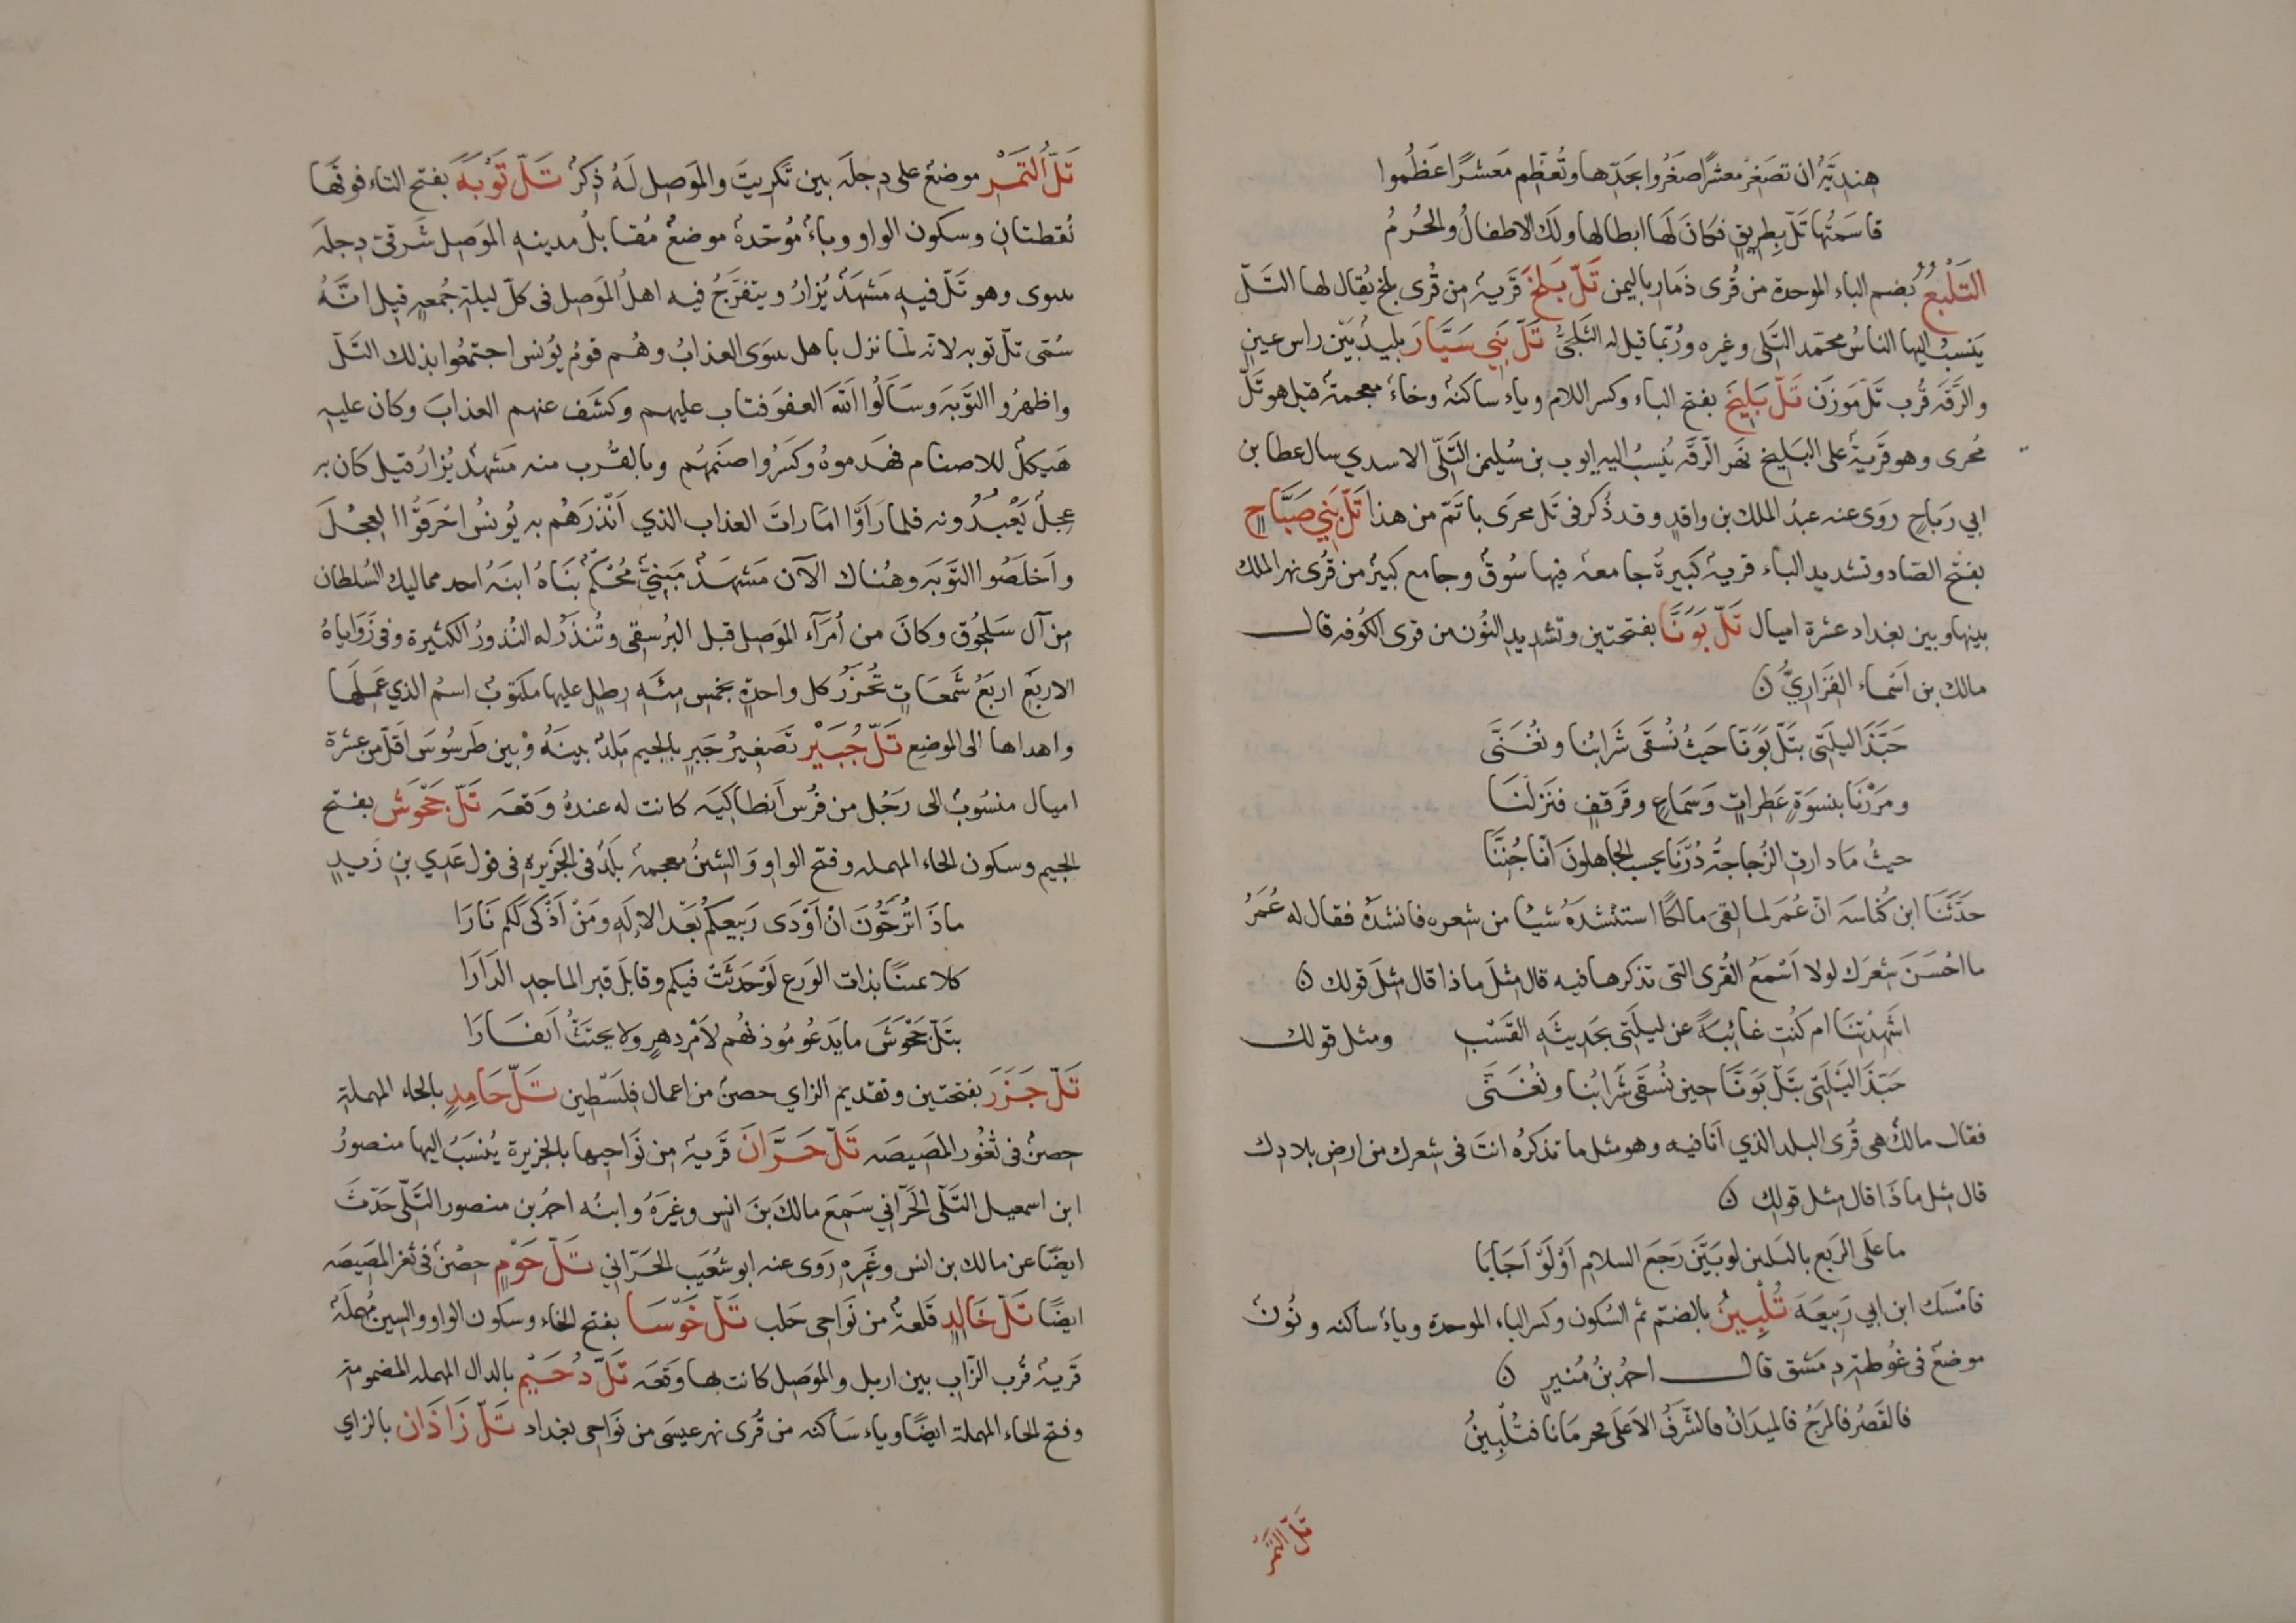 هنديَّة ان تصغر معشرًا صغروا بحدّها وتُعظّم معشرًا عَظُموا
قاسَمتُها تَلّ بِطرِيقٍ فكانَ لَها ابطالها ولَك الاطفالُ والحُرمُ
التَلْبُعُ بضم الباء الموحدة من قُرى ذَمار باليمن تَلّ بَلخَ قَرية من قُرى بلخ يُقال لها التَلّ
يَنسبُ اليها الناسُ محمّد التَّلى وغيره ورُبّما قيل له التَلبَخيُّ تَلّ بَنِي سَيَّارَ بليدٌ بَيْن راس عينٍ
والرَّقَه قُرب تَلّ مَوزَن تَلّ بَليخَ بفتح الباء وكسر اللام وياء ساكنة وخاء معجمة قيل هو تَلّ
مُحرى وهو قَريةٌ على البَليخ نَهر الرَّقَه يُنسبُ اليه ايوب بن سُليمن التَّلّى الاسدي سال عطا بن
ابي رَباحٍ رَوى عنه عبدُ الملك بن واقدٍ وقد ذُكر فى تَل محرَى باتَمّ من هذا تَلّ بَنِي صَبَّاحٍ
بفتح الصّاد وتشديد الباء قريةٌ كَبيرةٌ جامعة فيها سُوقٌ وجامع كبيرٌ من قُرى نهر الملك
بينها وبين بغداد عشرة اميال تَلّ بَوَنَّا بفتحتين وتشديد النُون من قرى الكُوفه قال
مالك بن اَسْماء الفَزَاريُّ ن
حَبَّذا ليلَتى بتَلّ بَوَنّا حَيثُ نُسقَى شَرابُنا ونُغنَّى
ومَرَرْنَا بنسوَةٍ عَطِراتٍ وَسَماعٍ وقَرقفٍ فنَزلنَا
حيثُ مَا دارتِ الزُجاجةُ دُرْنَا يحسب الجاهلونَ انّا جُنِنَّا
حَدَّثَنَا ابن كُناسَه انّ عُمَر لما لقىَ مالكًا استنشدَهُ شيئا من شعره فانشدَهُ فقال له عُمَرُ
ما احْسَنَ شِعْرَك لولا اَسْمَعُ القُرى التى تذكرها فيه قال مثلَ ماذا قال مثلَ قولك ن
اشَهِدْتِنَا ام كُنتِ غائبَةً عن ليلَتى بحَديثَه القَسْبِ ومثل قولك
حَبّذا ليْلَتى بتَلّ بَوَنّا حين نُسقَى شَرابُنا ونُغَنَّى
فقال مالكٌ هى قُرى البلد الذي اَنا فيه وهو مثل ما تذكرُه انتَ فى شِعرك من ارض بلادك
قال مثل ماذَا قال مثل قولِك ن
ما علَى الرَبع بالبليين لو بَيّنَ رَجعَ السلامِ اَوْ لَوْ اَجَابَا
فامْسَك ابن ابي رَبيعَةَ تُلْبِينُ بالضّم ثم السُكون وكسر الباء الموحدة وياءٌ ساكنه ونُونٌ
موضعٌ فى غُوطة دِمَشق قال احمدُ بنُ مُنيرٍ ن
فالقَصْرُ فالمَرجُ فالميدَانُ فالشَّرَفُ الاَعلَى فجرمانا فتُلْبِينُ
تَلّ التَمْر
تَلُّ التَمْر موضعٌ على دِجلَه بين تَكْريتَ والمَوصِل لَهُ ذِكرٌ تَلّ تَوْبَةَ بفتح التاء فوقها
نُقطتانِ وسكون الواو وباءٌ مُوحّدةٌ موضعٌ مُقابلُ مدينه المَوصِل شَرقىّ دِجلَه
بنينوى وهو تَلّ فيهِ مَشهَدٌ يُزارُ ويتفرَّجُ فيه اهلُ المَوصِل فى كلّ ليلة جُمعةٍ قيل انَّهُ
سُمّى تلّ توبه لانه لمّا نزل باهل نينوَى العذابُ وهُم قومُ يُونس اجتمَعُوا بذلك التَلّ
واظهرُوا التَّوبَه وسَأَلُوا اللهَ العفوَ فتاب عليهم وكشَف عنهم العذابَ وكان عليهِ
هَيكلٌ للاصنام فهَدموهُ وكسَرُوا صنَمهُم وبالقُرب منه مَشهدٌ يُزارُ قيل كان به
عِجلٌ يَعْبدُونه فلما رَاَوْا امَاراتَ العذاب الذي اَنْذرَهُم به يُونسُ احْرَقُوا العِجْلَ
واَخلَصُوا التَّوبَه وهُناك الآن مَشهَدٌ مَبنِيٌّ مُحْكَمٌ بَنَاهُ ابنَه احد مماليك السُلطان
مِن آل سَلجُوق وكانَ من اُمَرآءِ المَوصِل قبل البُرسقى وتُنذَرُ له النُذورُ الكثيرة وفى زَوَاياهُ
الاربَع اربَعُ شَمعَاتٍ تُحزَرُ كل واحدةٍ بخمس مِئَةِ رطلٍ عليها مكتوبٌ اسمُ الذي عَمِلَها
واهداها الى الموضع تَلّ جُبَيْرٍ تصغيرُ جَبرٍ بالجيم بَلدٌ بينَهُ وبين طَرسُوسَ اقلّ من عشرة
اميال منسُوبٌ الى رَجُل من فُرس اَنطاكيَه كانت له عندهُ وَقعَه تَلّ جَحْوَش بفتح
الجيم وسكون الحاء المهمله وفتح الواو وَالشينُ معجمة بلَدٌ فى الجَزيره فى قول عَدي بنِ زَيدٍ
ماذَا تُرَجُّونَ انْ اَوْدَى رَبيعكُم بَعْدَ الالَهِ ومَنْ اَذْكَى لكم نَارَا
كلا يمينًا بذات الوَرع لَوْ حَدثَتْ فيكم وقابلَ قبر الماجد الدارَا
بتَلّ جَحْوَشَ ما يَدعُو مُوذنهُم لاَمْر دهرٍ ولا يحتَثُّ اَنفارَا
تَلّ جَزَرَ بفتحتين وتقديم الزاي حصنٌ من اعمال فِلَسْطين تَلّ حَامِدٍ بالحاء المهملة
حِصنٌ فى ثغُور المَصيصَه تَلّ حَرَّانَ قَريةٌ من نَواحيها بالجزيرة يُنسَبُ اليها منصورُ
ابن اسمعيل التَلّى الحَرّاني سَمِعَ مالكَ بنَ انسٍ وغيرَهُ وابنُه احمدُ بن منصور التَّلّى حَدّثَ
ايضًا عن مالك بن انس وغَيرِه رَوى عنه ابو شُعَيب الحَرّاني تَلّ حَوْمٍ حِصْنٌ فى ثغر المَصيصَه
ايضًا تَلّ خَالِدٍ قَلعةٌ من نَواحى حَلب تَلّ خَوْسَا بفتح الخاء وسكون الواو والسين مُهملَةٌ
قَريةٌ قُرب الزّابِ بين اربل والمَوصِل كانت بها وقَعَه تَلّ دُحَيْمٍ بالدال المهمله المضمومة
وفتح الحاء المهملة ايضًا وياء سَاكنه من قُرى نهر عيسَى من نَواحى بغداد تَلّ زَاذَان بالزاي